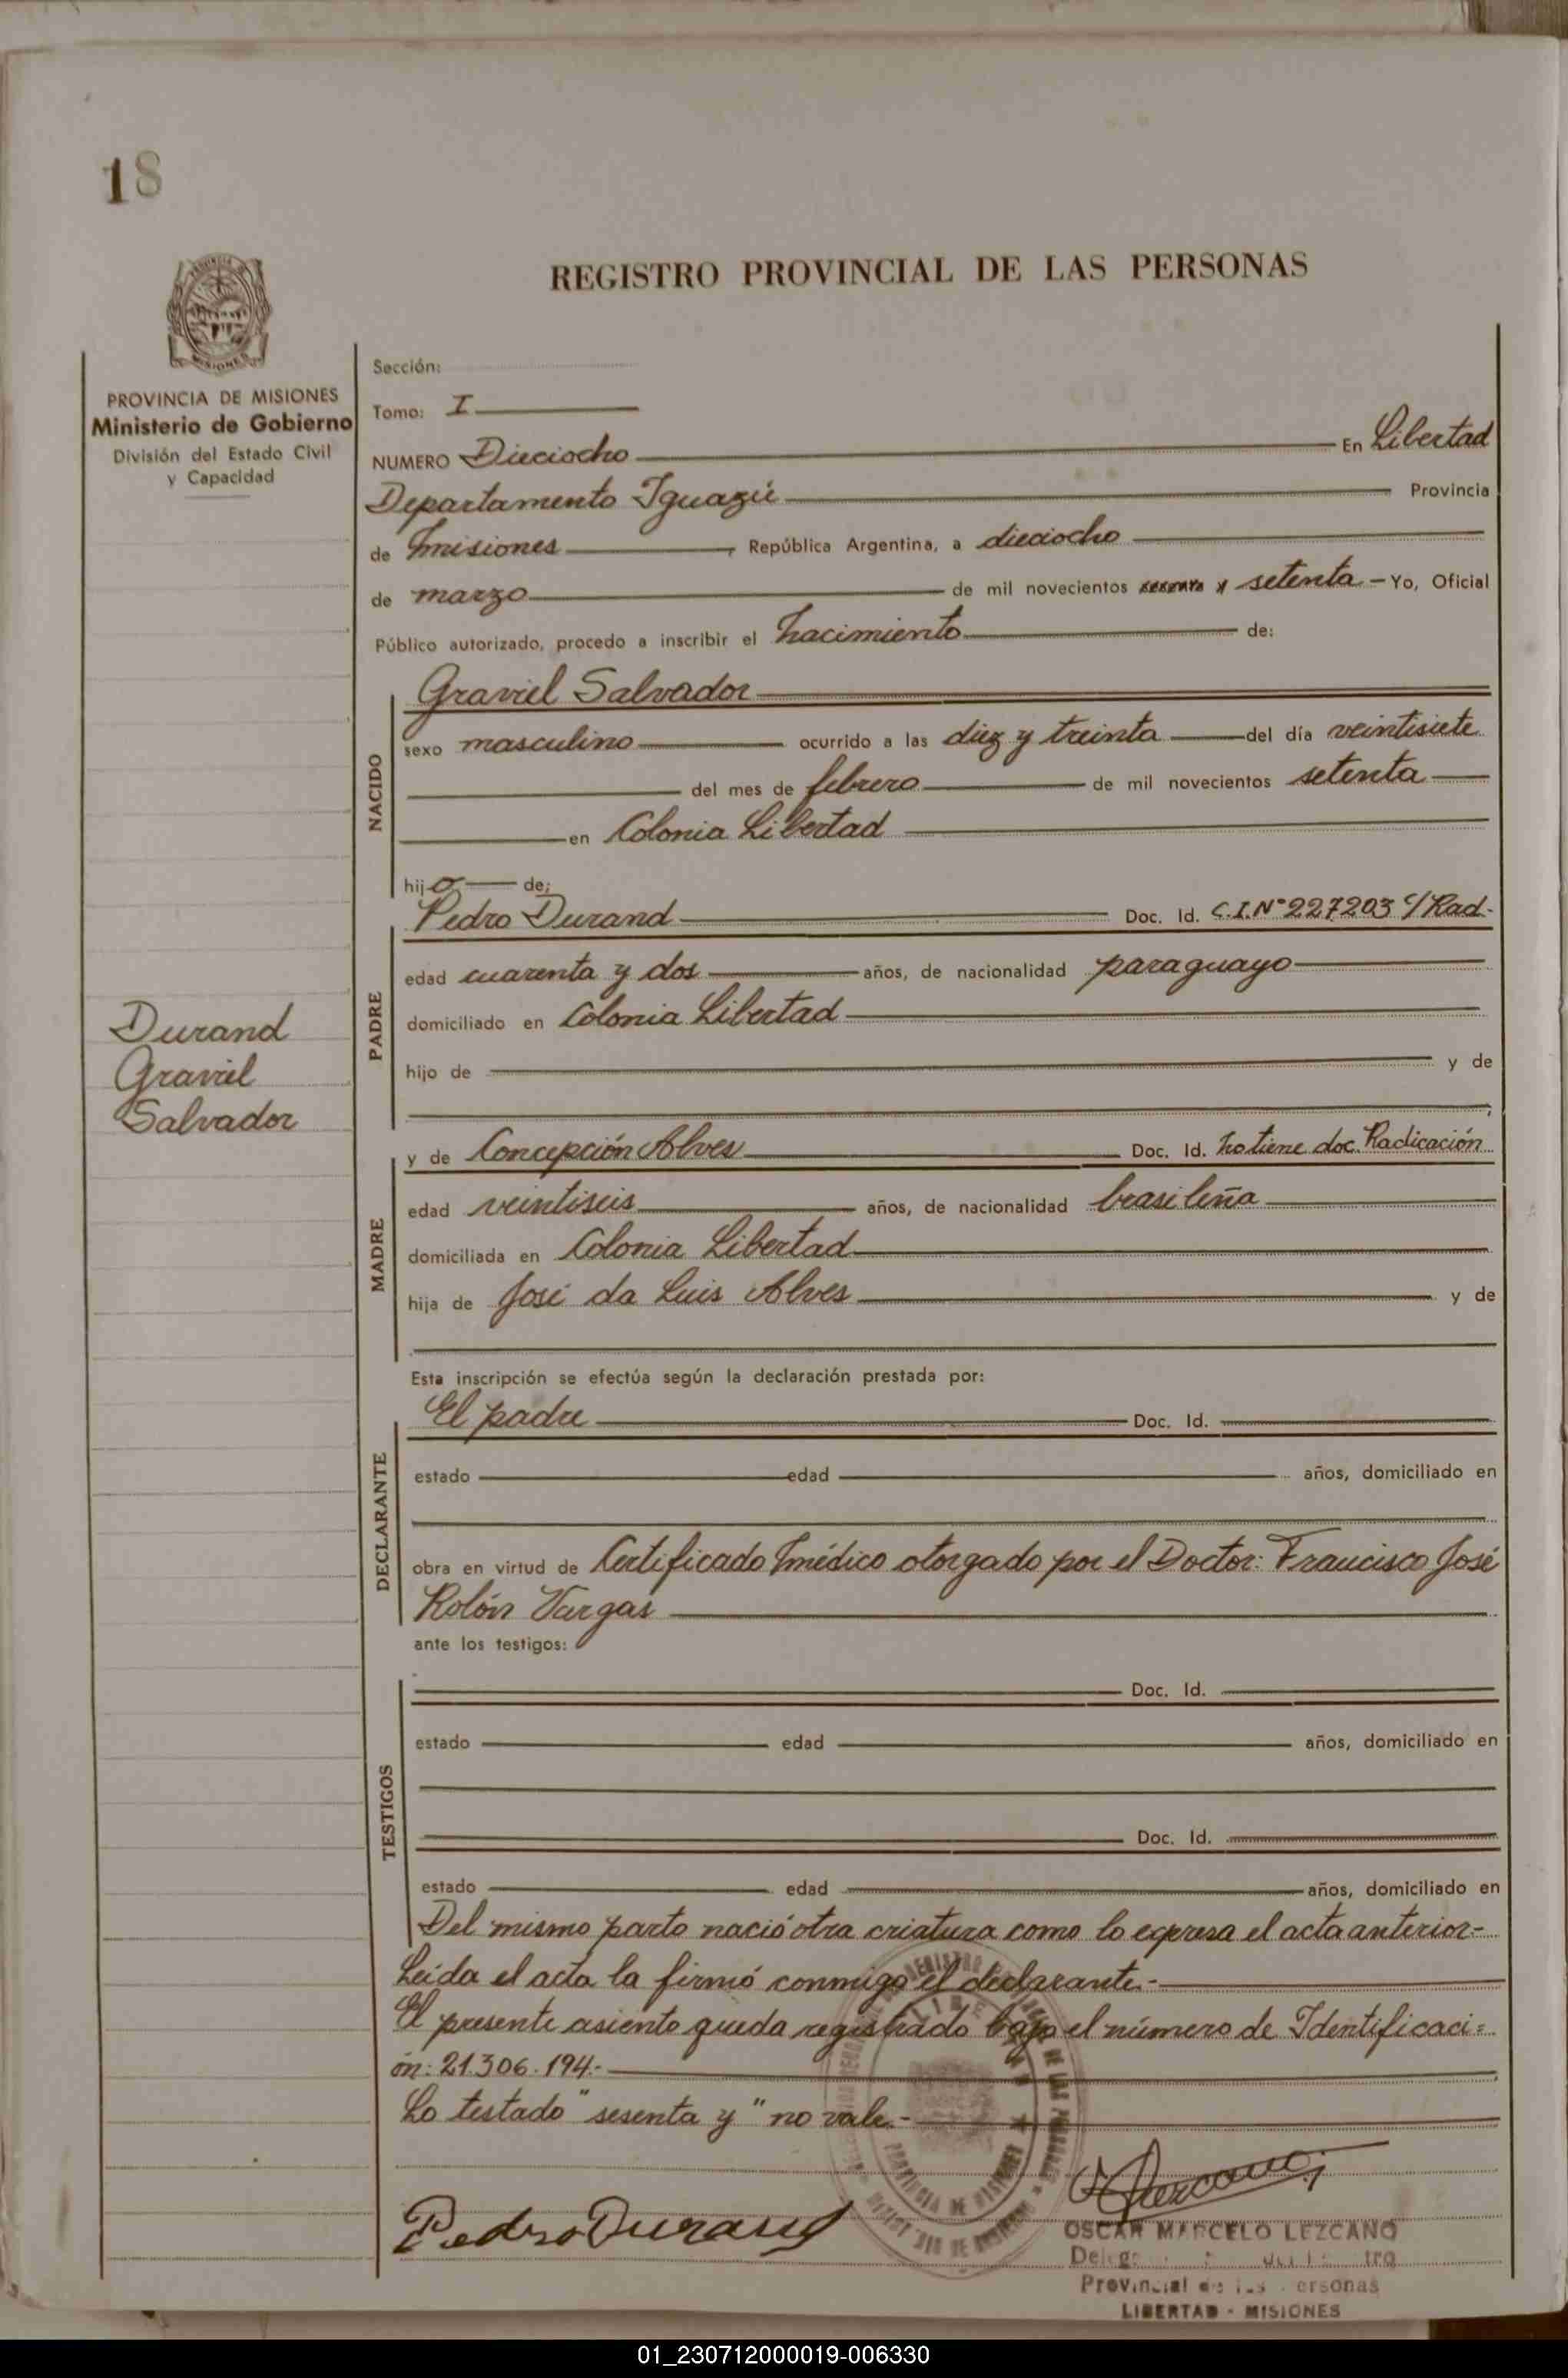 18
REGISTRO PROVINCIAL DE LAS PERSONAS
PROVINCIA DE MISIONES
Ministerio de Gobierno
División del Estado Civil
y Capacidad
Sección:
Tomo: I
NUMERO Dieciocho En Libertad
Departamento Iguazú Provincia
de misiones, República Argentina, a dieciocho
de marzo de mil novecientos sesenta y setenta - Yo, Oficial
Público autorizado, procedo a inscribir el nacimiento de:
NACIDO
Graviel Salvador
sexo masculino ocurrido a las diez y treinta del día veintisiete
del mes de febrero de mil novecientos setenta
en Colonia Libertad
hijo de;
PADRE
Pedro Durand Doc. Id. C.I.Nº 227203 c/Rad.
edad cuarenta y dos años, de nacionalidad paraguayo
domiciliado en Colonia Libertad
hijo de y de
Durand
Graviel
Salvador
MADRE
y de Concepción Alves Doc. Id. no tiene doc. Radicación
edad veintiseis años, de nacionalidad brasileña
domiciliada en Colonia Libertad
hija de José da Luis Alves y de
Esta inscripción se efectúa según la declaración prestada por:
DECLARANTE
El padre Doc. Id.
estado edad años, domiciliado en
obra en virtud de Certificado médico otorgado por el Doctor: Francisco José
Rolón Vargas
ante los testigos:
TESTIGOS
Doc. Id.
estado edad años, domiciliado en
Doc. Id.
estado edad años, domiciliado en
Del mismo parto nació otra criatura como lo expresa el acta anterior-
Leída el acta la firmó conmigo el declarante.-
El presente asiento queda registrado bajo el número de Identificaci=
ón: 21.306.194.-
Lo testado "sesenta y" no vale.-
Pedro Durand
OSCAR MARCELO LEZCANO
Provincial de las Personas
LIBERTAD - MISIONES
01_230712000019-006330